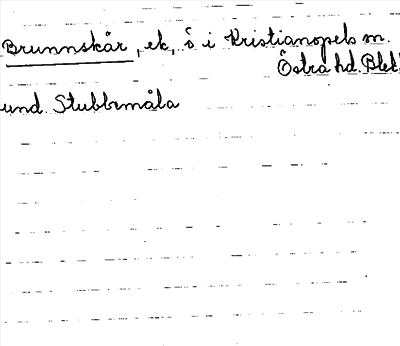 Brunnskär, ek, ö i Kristianopels sn.
Östra hd. Blek.
und. Stubbemåla